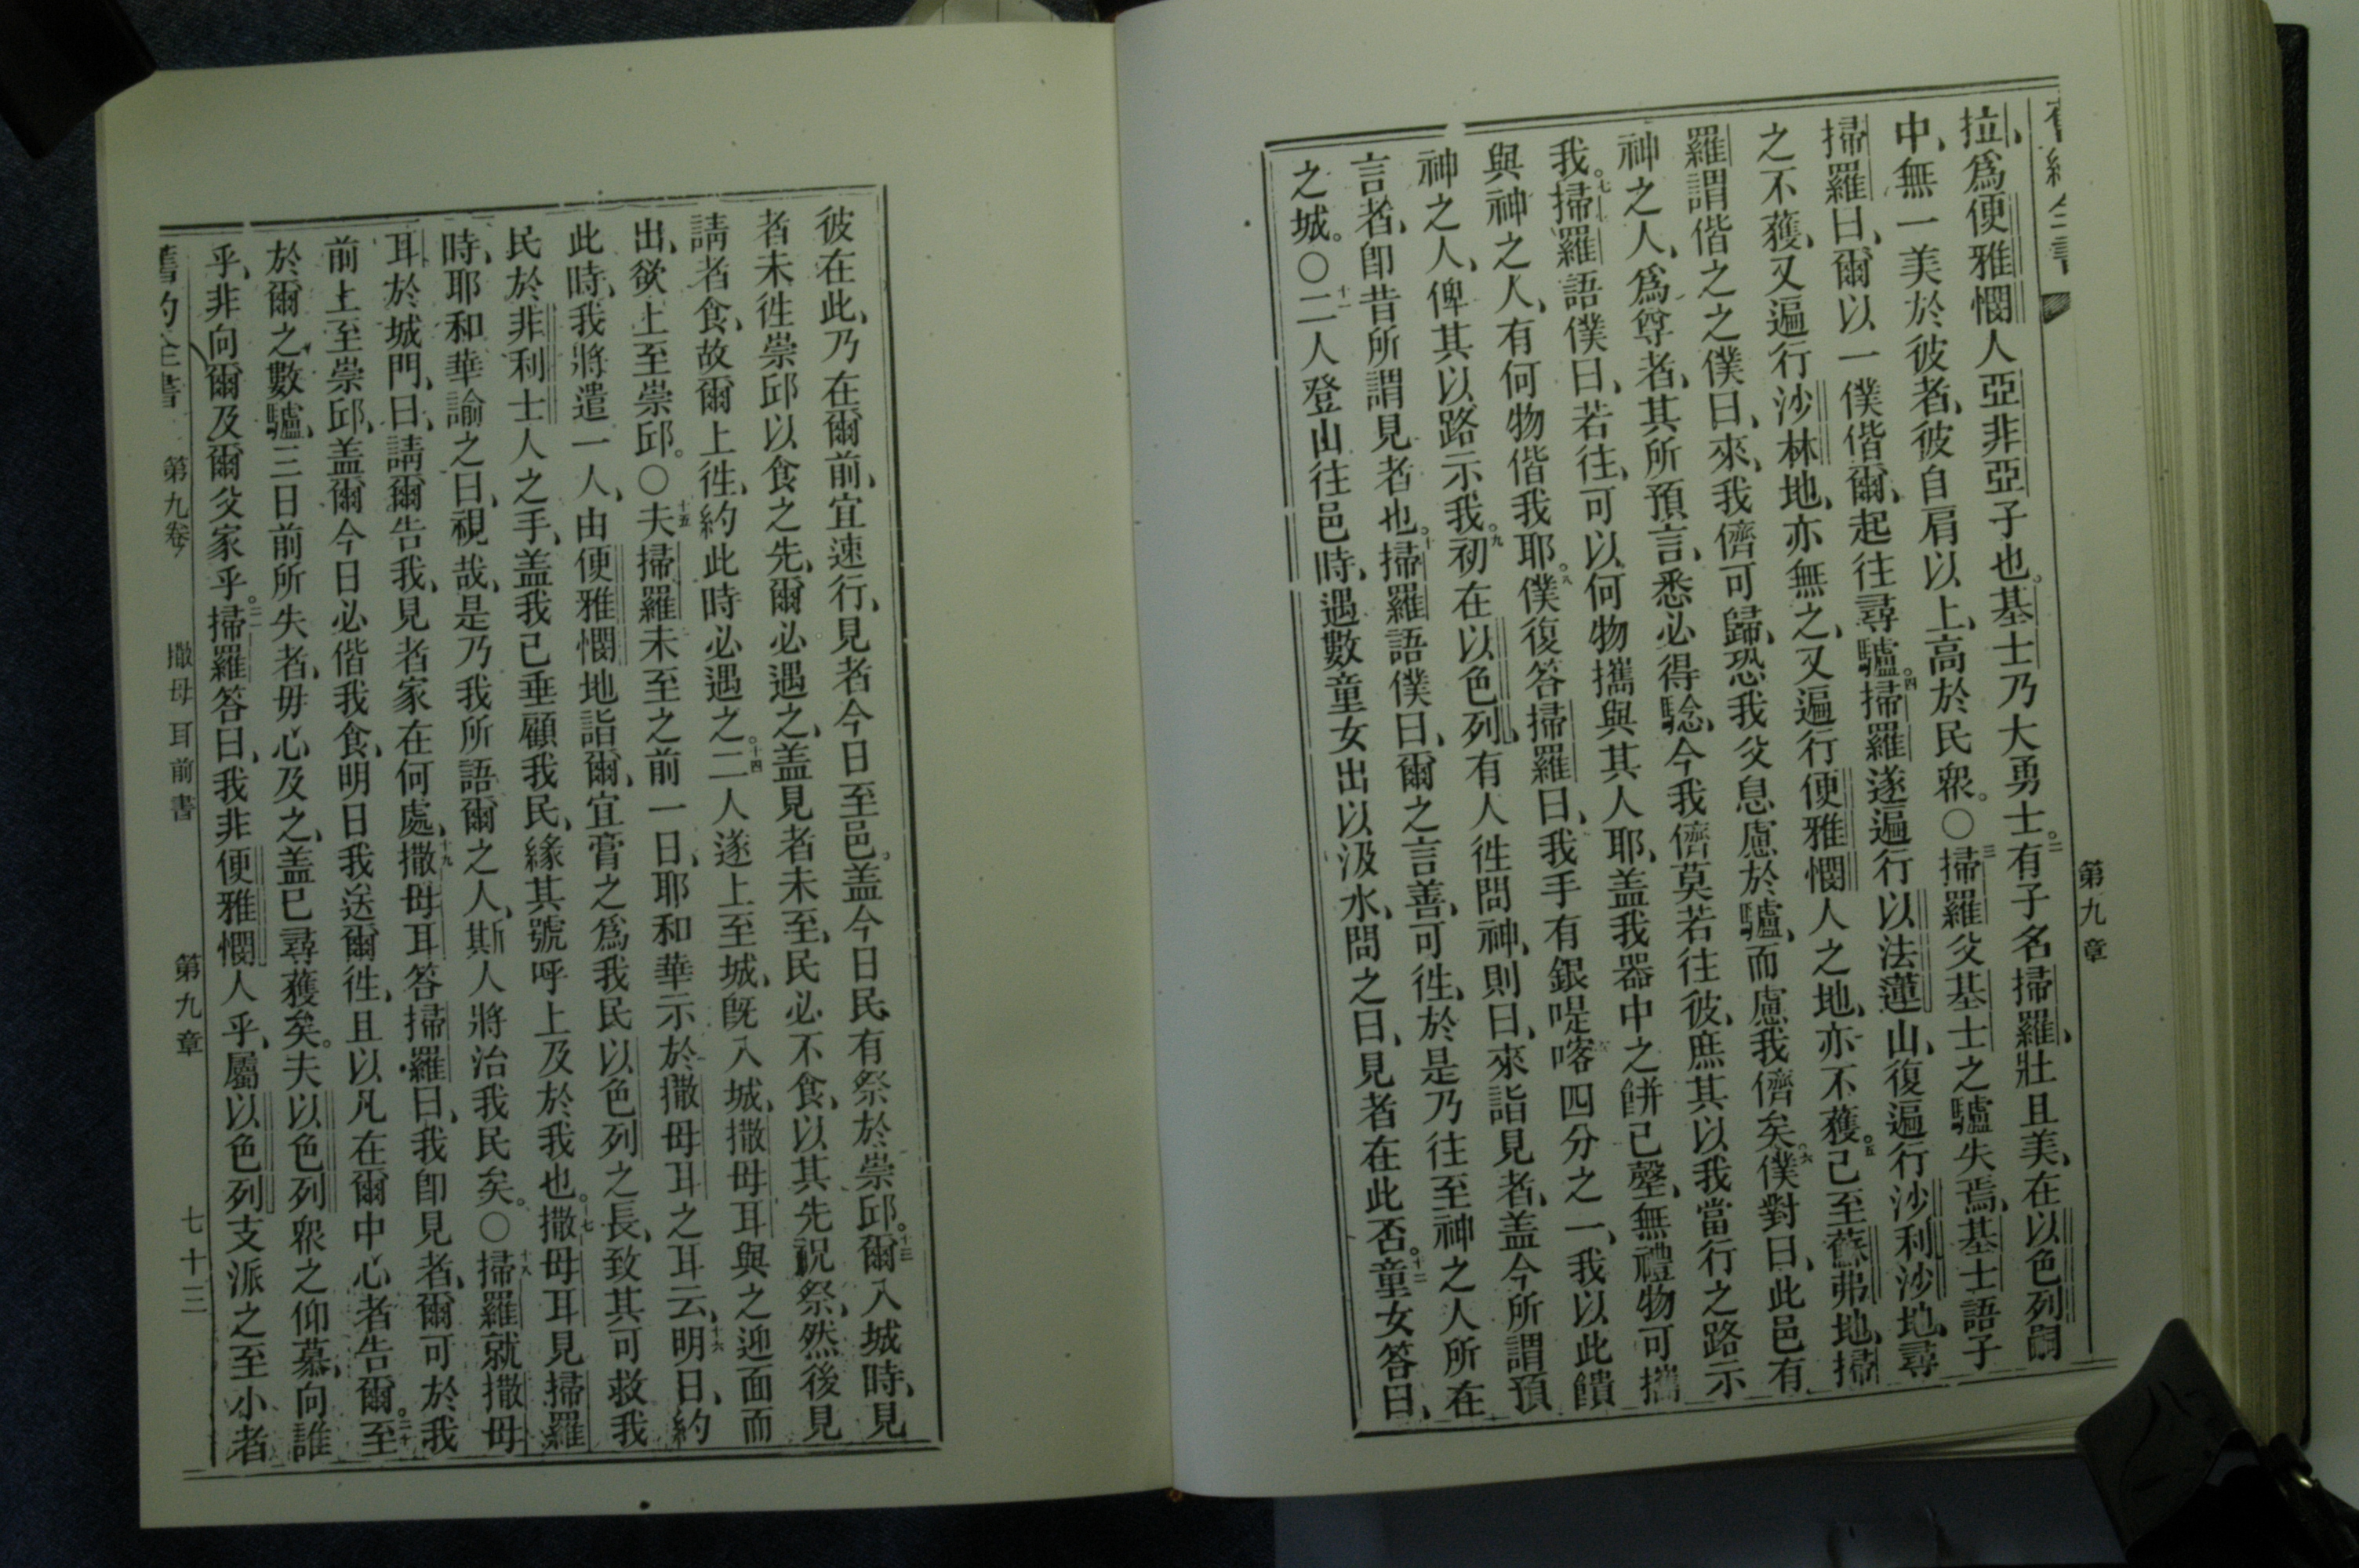 第九章
拉、爲便雅憫人亞非亞子也。基士乃大勇士。二有子名掃羅、壯且美、在以色列嗣
中、無一美於彼者、彼自肩以上、高於民衆。○三掃羅父基士之驢失焉、基士語子
掃羅曰、爾以一僕偕爾、起往尋驢。四掃羅遂遍行以法蓮山、復遍行沙利沙地、尋
之不獲、又遍行沙林地、亦無之、又遍行便雅憫人之地、亦不獲。五已至蘇弗地、掃
羅謂偕之之僕曰、來、我儕可歸、恐我父息慮於驢、而慮我儕矣。六僕對曰、此邑有
神之人、爲尊者、其所預言、悉必得騐、今我儕莫若往彼、庶其以我當行之路示
我。七掃羅語僕曰、若往、可以何物攜與其人耶、盖我器中之餅已罄、無禮物可攜
與神之人、有何物偕我耶。八僕復答掃羅曰、我手有銀喼喀四分之一、我以此饋
神之人、俾其以路示我。九初在以色列、有人徃問神、則曰、來詣見者、盖今所謂預
言者、卽昔所謂見者也。十掃羅語僕曰、爾之言善、可徃、於是乃往至神之人所在
之城。○十一二人登山往邑時、遇數童女出以汲水、問之曰、見者在此否。十二童女答曰、
彼在此、乃在爾前、宜速行、見者今日至邑。盖今日民有祭於崇邱。十三爾入城時、見
者未徃崇邱以食之先、爾必遇之、盖見者未至、民必不食、以其先祝祭、然後見
請者食、故爾上徃、約此時必遇之。十四二人遂上至城、旣入城、撒母耳與之迎面而
出、欲上至崇邱。○十五夫掃羅未至之前一日、耶和華示於撒母耳之耳云、十六明日、約
此時、我將遣一人、由便雅憫地詣爾、宜膏之爲我民以色列之長、致其可救我
民於非利士人之手、盖我已垂顧我民、緣其號呼上及於我也。十七撒母耳見掃羅
時、耶和華諭之曰、視哉、是乃我所語爾之人、斯人將治我民矣。○十八掃羅就撒母
耳於城門、曰、請爾告我、見者家在何處、十九撒母耳答掃羅曰、我卽見者、爾可於我
前上至崇邱、盖爾今日必偕我食、明日我送爾徃、且以凡在爾中心者告爾。二十至
於爾之數驢、三日前所失者、毋心及之、盖已尋獲矣。夫以色列衆之仰慕、向誰
乎、非向爾及爾父家乎。二一掃羅答曰、我非便雅憫人乎、屬以色列支派之至小者
舊約全書 第九卷 撒母耳前書 第九章 七十三